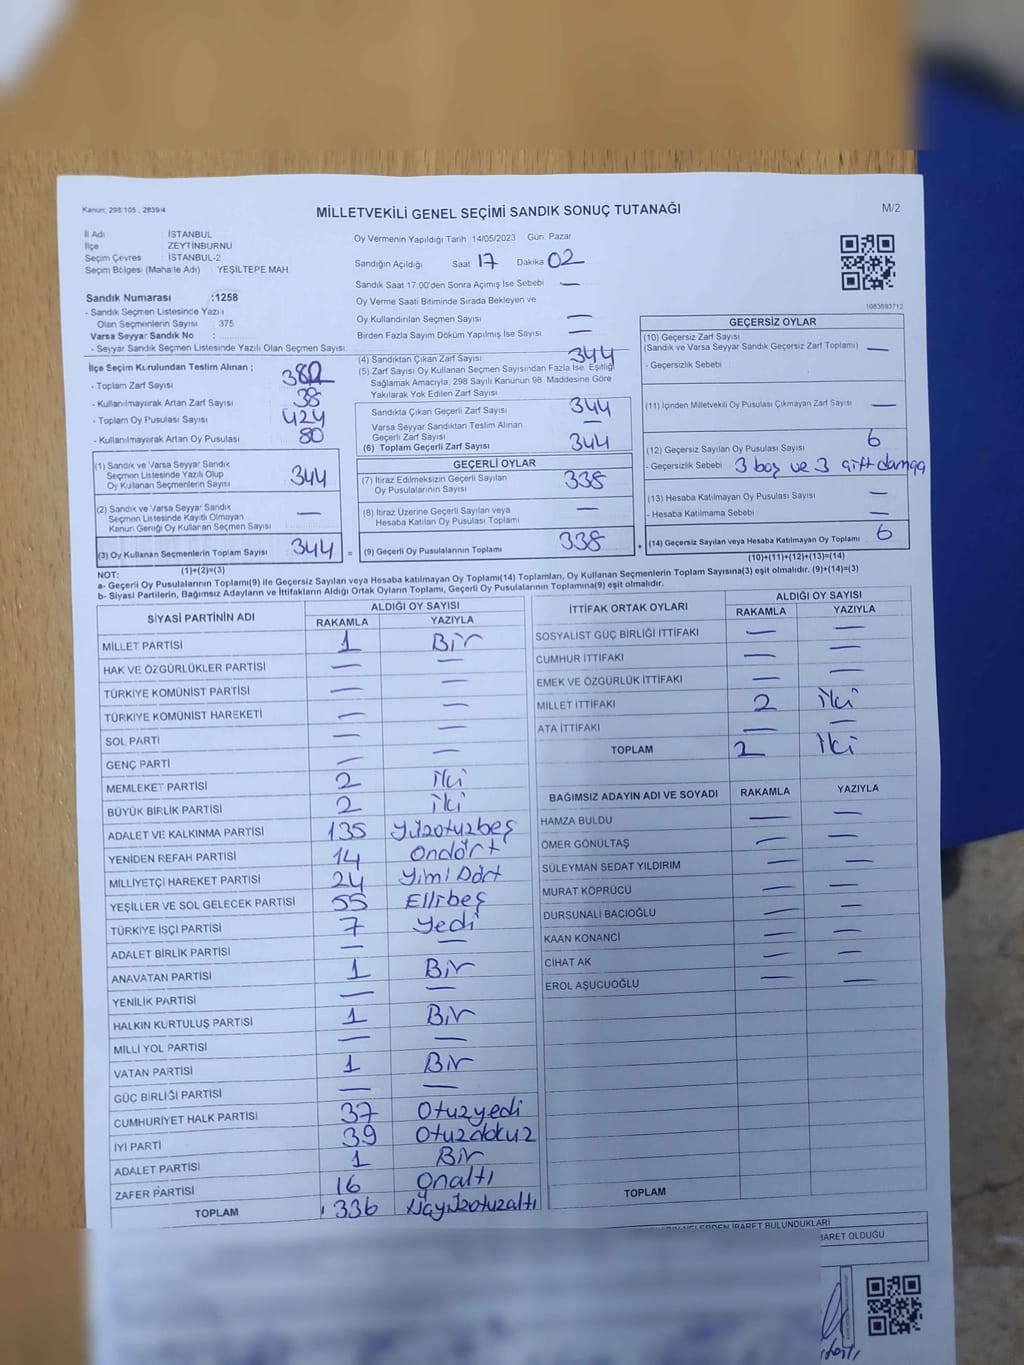 Kanun: 298/105 , 2839/4
MİLLETVEKİLİ GENEL SEÇİMİ SANDIK SONUÇ TUTANAĞI
M/2
İl Adı : İSTANBUL
İlçe : ZEYTİNBURNU
Seçim Çevres : İSTANBUL-2
Seçim Bölgesi (Mahalle Adı) : YEŞİLTEPE MAH.
Sandık Numarası :1258
- Sandık Seçmen Listesinde Yazılı
Olan Seçmenlerin Sayısı : 375
Varsa Seyyar Sandık No :
- Seyyar Sandık Seçmen Listesinde Yazılı Olan Seçmen Sayısı:
İlçe Seçim Kurulundan Teslim Alınan ;
- Toplam Zarf Sayısı 382
- Kullanılmayarak Artan Zarf Sayısı 38
- Toplam Oy Pusulası Sayısı 424
- Kullanılmayarak Artan Oy Pusulası 80
(1) Sandık ve Varsa Seyyar Sandık
Seçmen Listesinde Yazılı Olup
Oy Kullanan Seçmenlerin Sayısı 344
(2) Sandık ve Varsa Seyyar Sandık
Seçmen Listesinde Kayıtlı Olmayan
Kanun Gereği Oy Kullanan Seçmen Sayısı —
(3) Oy Kullanan Seçmenlerin Toplam Sayısı 344
(1)+(2)=(3)
Oy Vermenin Yapıldığı Tarih 14/05/2023 Gün: Pazar
Sandığın Açıldığı Saat 17 Dakika 02
Sandık Saat 17:00'den Sonra Açımış İse Sebebi —
Oy Verme Saati Bitiminde Sırada Bekleyen ve
Oy Kullandırılan Seçmen Sayısı —
Birden Fazla Sayım Döküm Yapılmış İse Sayısı —
(4) Sandıktan Çıkan Zarf Sayısı 344
(5) Zarf Sayısı Oy Kullanan Seçmen Sayısından Fazla İse, Eşitliği
Sağlamak Amacıyla, 298 Sayılı Kanunun 98. Maddesine Göre
Yakılarak Yok Edilen Zarf Sayısı
Sandıkta Çıkan Geçerli Zarf Sayısı 344
Varsa Seyyar Sandıktan Teslim Alınan
Geçerli Zarf Sayısı —
(6) Toplam Geçerli Zarf Sayısı 344
GEÇERLİ OYLAR
(7) İtiraz Edilmeksizin Geçerli Sayılan
Oy Pusulalarının Sayısı 338
(8) İtiraz Üzerine Geçerli Sayılan veya
Hesaba Katılan Oy Pusulası Toplamı —
= (9) Geçerli Oy Pusulalarının Toplamı 338
1083693712
GEÇERSİZ OYLAR
(10) Geçersiz Zarf Sayısı
(Sandık ve Varsa Seyyar Sandık Geçersiz Zarf Toplamı) —
- Geçersizlik Sebebi
(11) İçinden Milletvekili Oy Pusulası Çıkmayan Zarf Sayısı —
(12) Geçersiz Sayılan Oy Pusulası Sayısı 6
- Geçersizlik Sebebi 3 boş ve 3 çift damga
(13) Hesaba Katılmayan Oy Pusulası Sayısı —
- Hesaba Katılmama Sebebi —
+ (14) Geçersiz Sayılan veya Hesaba Katılmayan Oy Toplamı 6
(10)+(11)+(12)+(13)=(14)
NOT:
a- Geçerli Oy Pusulalarının Toplamı(9) ile Geçersiz Sayılan veya Hesaba katılmayan Oy Toplamı(14) Toplamları, Oy Kullanan Seçmenlerin Toplam Sayısına(3) eşit olmalıdır. (9)+(14)=(3)
b- Siyasi Partilerin, Bağımsız Adayların ve İttifakların Aldığı Ortak Oyların Toplamı, Geçerli Oy Pusulalarının Toplamına(9) eşit olmalıdır.
SİYASİ PARTİNİN ADI ALDIĞI OY SAYISI
RAKAMLA YAZIYLA
MİLLET PARTİSİ 1 Bir
HAK VE ÖZGÜRLÜKLER PARTİSİ — —
TÜRKİYE KOMÜNİST PARTİSİ — —
TÜRKİYE KOMÜNİST HAREKETİ — —
SOL PARTİ — —
GENÇ PARTİ — —
MEMLEKET PARTİSİ 2 iki
BÜYÜK BİRLİK PARTİSİ 2 iki
ADALET VE KALKINMA PARTİSİ 135 Yüzotuzbeş
YENİDEN REFAH PARTİSİ 14 Ondört
MİLLİYETÇİ HAREKET PARTİSİ 24 Yimi Dört
YEŞİLLER VE SOL GELECEK PARTİSİ 55 Ellibeş
TÜRKİYE İŞÇİ PARTİSİ 7 Yedi
ADALET BİRLİK PARTİSİ — —
ANAVATAN PARTİSİ 1 Bir
YENİLİK PARTİSİ — —
HALKIN KURTULUŞ PARTİSİ 1 Bir
MİLLİ YOL PARTİSİ — —
VATAN PARTİSİ 1 Bir
GÜÇ BİRLİĞİ PARTİSİ — —
CUMHURİYET HALK PARTİSİ 37 Otuzyedi
İYİ PARTİ 39 Otuzdokuz
ADALET PARTİSİ 1 Bir
ZAFER PARTİSİ 16 Onaltı
TOPLAM 336
İTTİFAK ORTAK OYLARI ALDIĞI OY SAYISI
RAKAMLA YAZIYLA
SOSYALIST GÜÇ BİRLİĞİ İTTİFAKI — —
CUMHUR İTTİFAKI — —
EMEK VE ÖZGÜRLÜK İTTİFAKI — —
MİLLET İTTİFAKI 2 iki
ATA İTTİFAKI — —
TOPLAM 2 iki
BAĞIMSIZ ADAYIN ADI VE SOYADI RAKAMLA YAZIYLA
HAMZA BULDU — —
ÖMER GÖNÜLTAŞ — —
SÜLEYMAN SEDAT YILDIRIM — —
MURAT KÖPRÜCÜ — —
DURSUNALİ BACIOĞLU — —
KAAN KONANCİ — —
CİHAT AK — —
EROL AŞUCUOĞLU — —
TOPLAM
NELERDEN İBARET BULUNDUKLARI
BARET OLDUĞU